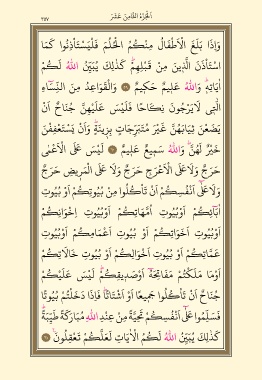 اَلْجُزْءُ الثَّامِنَ عَشَرَ
٣٥٧
وَاِذَا بَلَغَ الْاَطْفَالُ مِنْكُمُ الْحُلُمَ فَلْيَسْتَأْذِنُوا كَمَا
اسْتَأْذَنَ الَّذ۪ينَ مِنْ قَبْلِهِمْۜ كَذٰلِكَ يُبَيِّنُ اللّٰهُ لَكُمْ
اٰيَاتِه۪ۜ وَاللّٰهُ عَل۪يمٌ حَك۪يمٌ وَالْقَوَاعِدُ مِنَ النِّسَٓاءِ
الّٰت۪ي لَا يَرْجُونَ نِكَاحًا فَلَيْسَ عَلَيْهِنَّ جُنَاحٌ اَنْ
يَضَعْنَ ثِيَابَهُنَّ غَيْرَ مُتَبَرِّجَاتٍ بِز۪ينَةٍۜ وَاَنْ يَسْتَعْفِفْنَ
خَيْرٌ لَهُنَّۜ وَاللّٰهُ سَم۪يعٌ عَل۪يمٌ لَيْسَ عَلَى الْاَعْمٰى
حَرَجٌ وَلَا عَلَى الْاَعْرَجِ حَرَجٌ وَلَا عَلَى الْمَر۪يضِ حَرَجٌ
وَلَا عَلٰٓى اَنْفُسِكُمْ اَنْ تَأْكُلُوا مِنْ بُيُوتِكُمْ اَوْ بُيُوتِ
اٰبَٓائِكُمْ اَوْ بُيُوتِ اُمَّهَاتِكُمْ اَوْ بُيُوتِ اِخْوَانِكُمْ
اَوْ بُيُوتِ اَخَوَاتِكُمْ اَوْ بُيُوتِ اَعْمَامِكُمْ اَوْ بُيُوتِ
عَمَّاتِكُمْ اَوْ بُيُوتِ اَخْوَالِكُمْ اَوْ بُيُوتِ خَالَاتِكُمْ
اَوْ مَا مَلَكْتُمْ مَفَاتِحَهُٓ اَوْ صَد۪يقِكُمْۜ لَيْسَ عَلَيْكُمْ
جُنَاحٌ اَنْ تَأْكُلُوا جَم۪يعًا اَوْ اَشْتَاتًاۜ فَاِذَا دَخَلْتُمْ بُيُوتًا
فَسَلِّمُوا عَلٰٓى اَنْفُسِكُمْ تَحِيَّةً مِنْ عِنْدِ اللّٰهِ مُبَارَكَةً طَيِّبَةًۜ
كَذٰلِكَ يُبَيِّنُ اللّٰهُ لَكُمُ الْاٰيَاتِ لَعَلَّكُمْ تَعْقِلُونَ